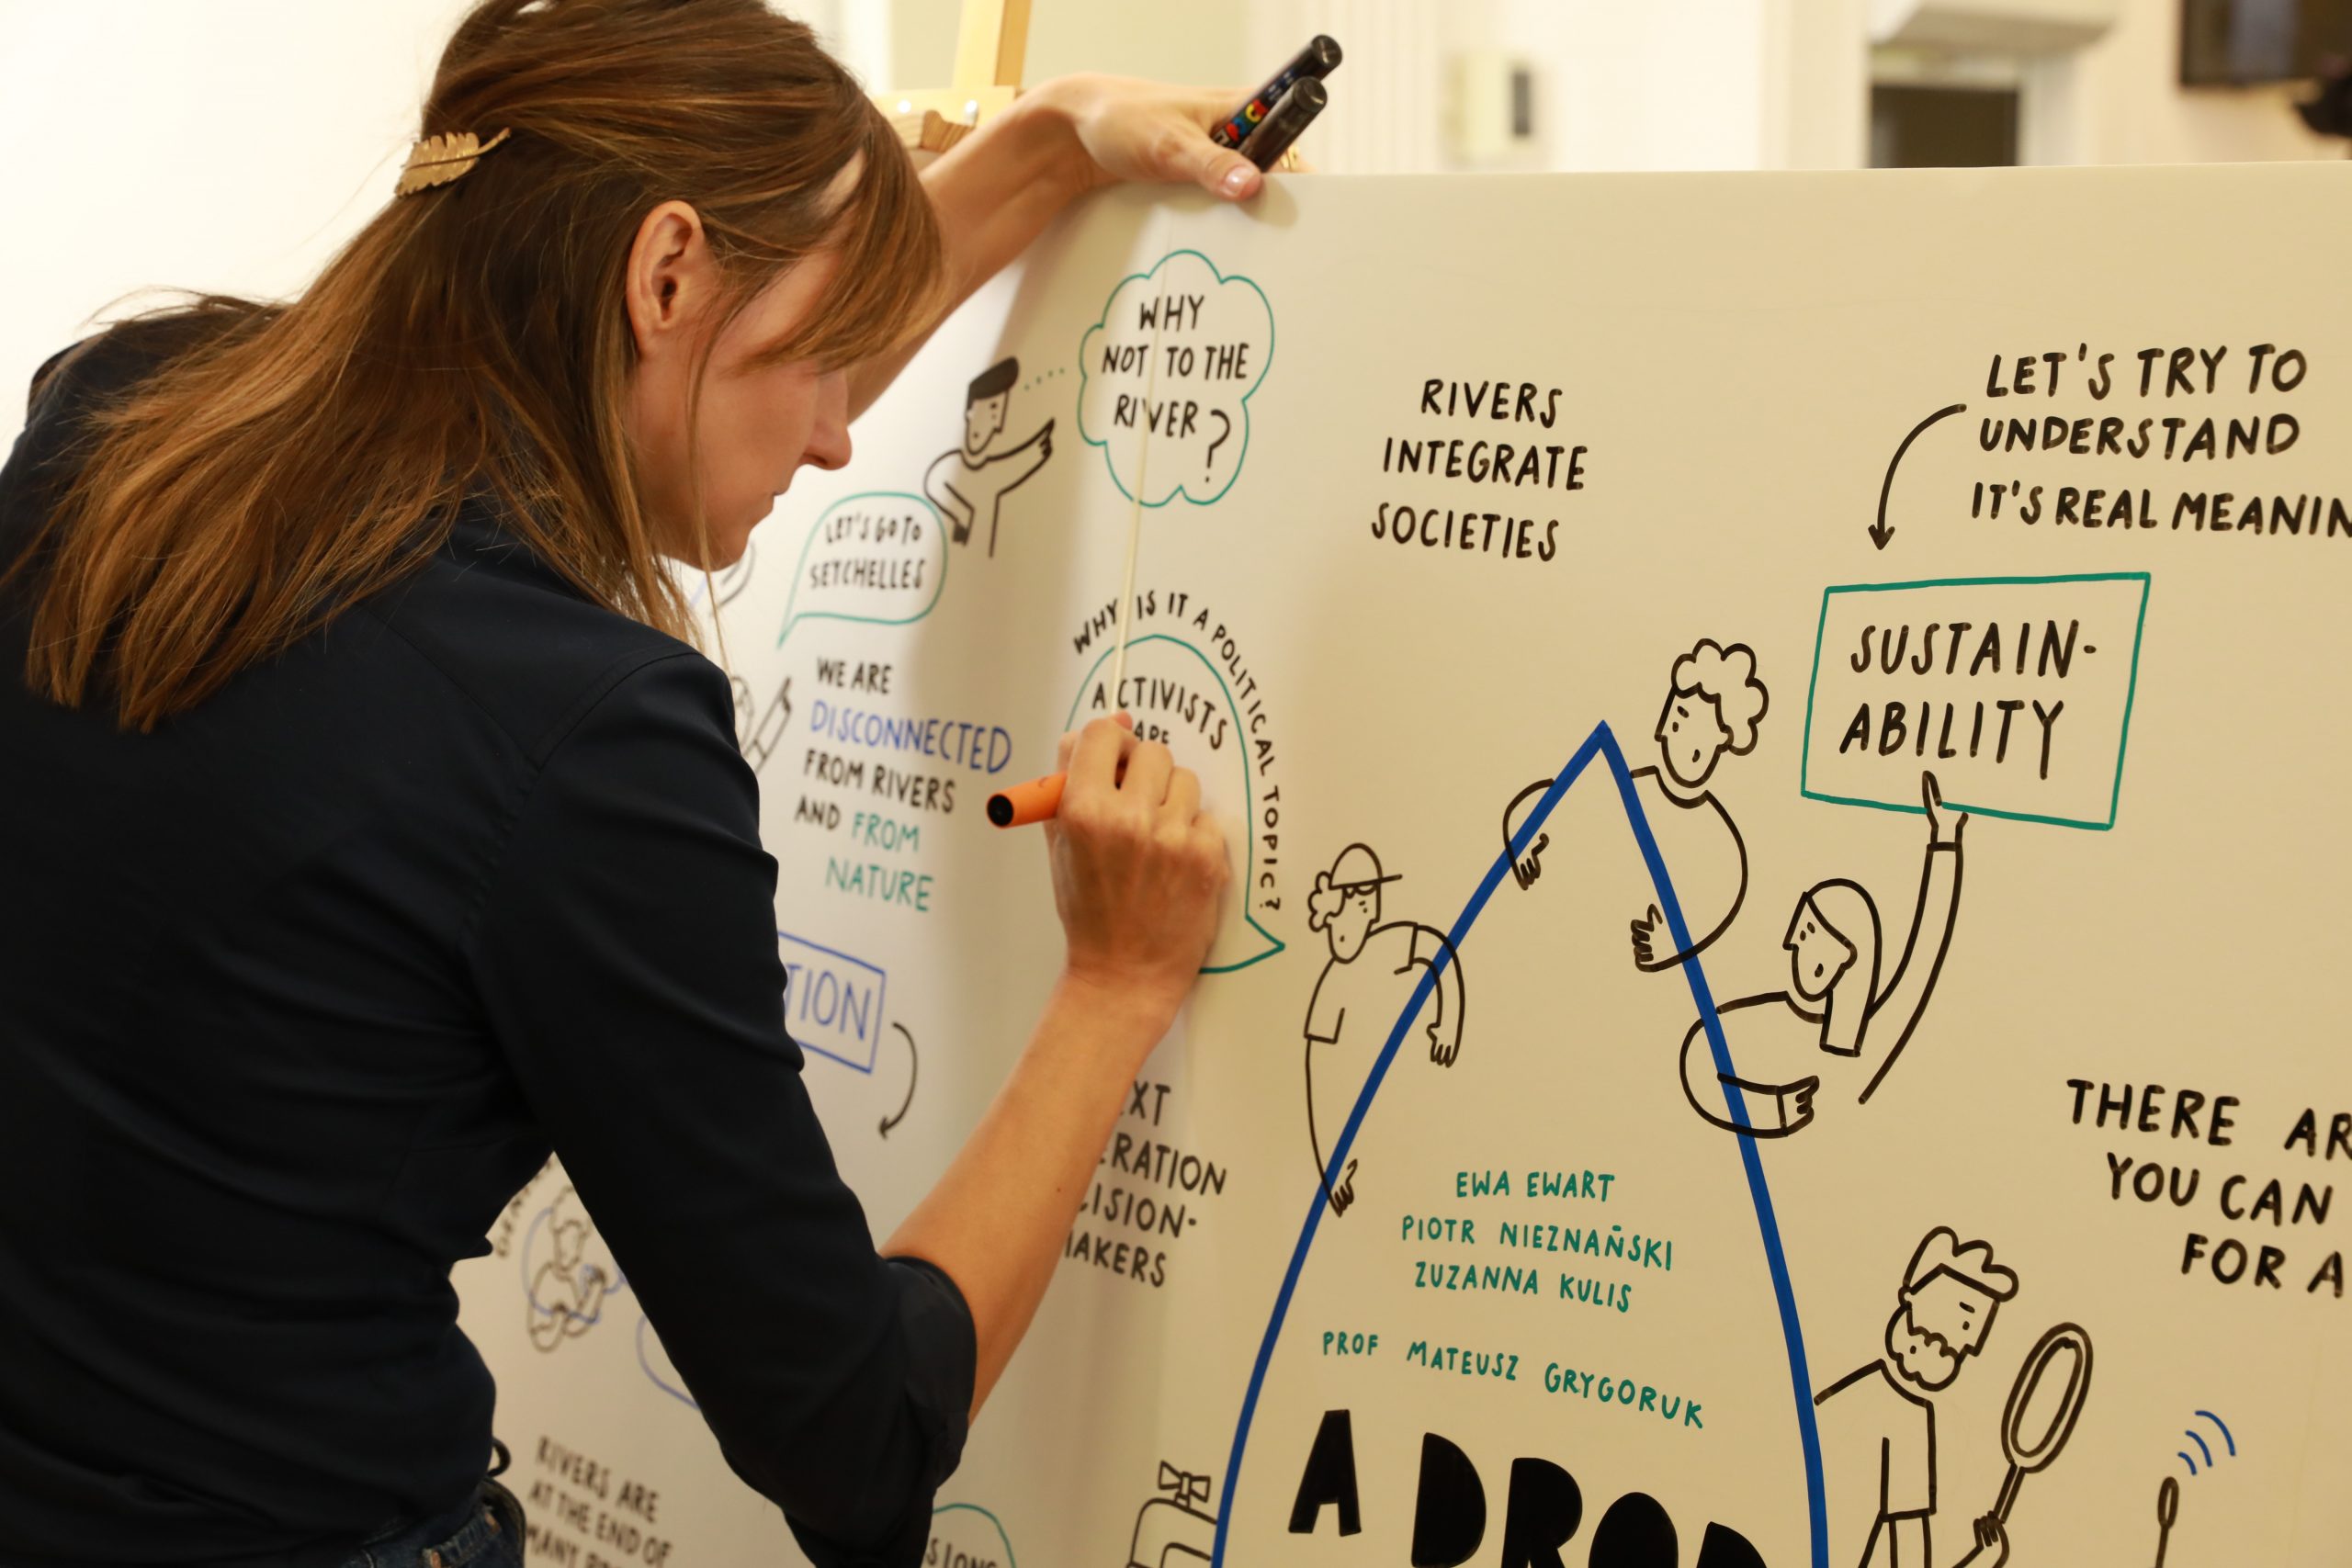 WHY
NOT TO THE
RIVER?
LET'S GO TO
SEYCHELLES
WE ARE
DISCONNECTED
FROM RIVERS
AND FROM
NATURE
WHY IS IT A POLITICAL TOPIC?
ACTIVISTS
ARE
RIVERS
INTEGRATE
SOCIETIES
LET'S TRY TO
UNDERSTAND
IT'S REAL MEANIN
SUSTAIN-
ABILITY
TION
EXT
ERATION
CISION-
MAKERS
THERE AR
YOU CAN
FOR A
EWA EWART
PIOTR NIEZNAŃSKI
ZUZANNA KULIS
PROF MATEUSZ GRYGORUK
A DROP
RIVERS ARE
AT THE END OF
MANY
SIONS